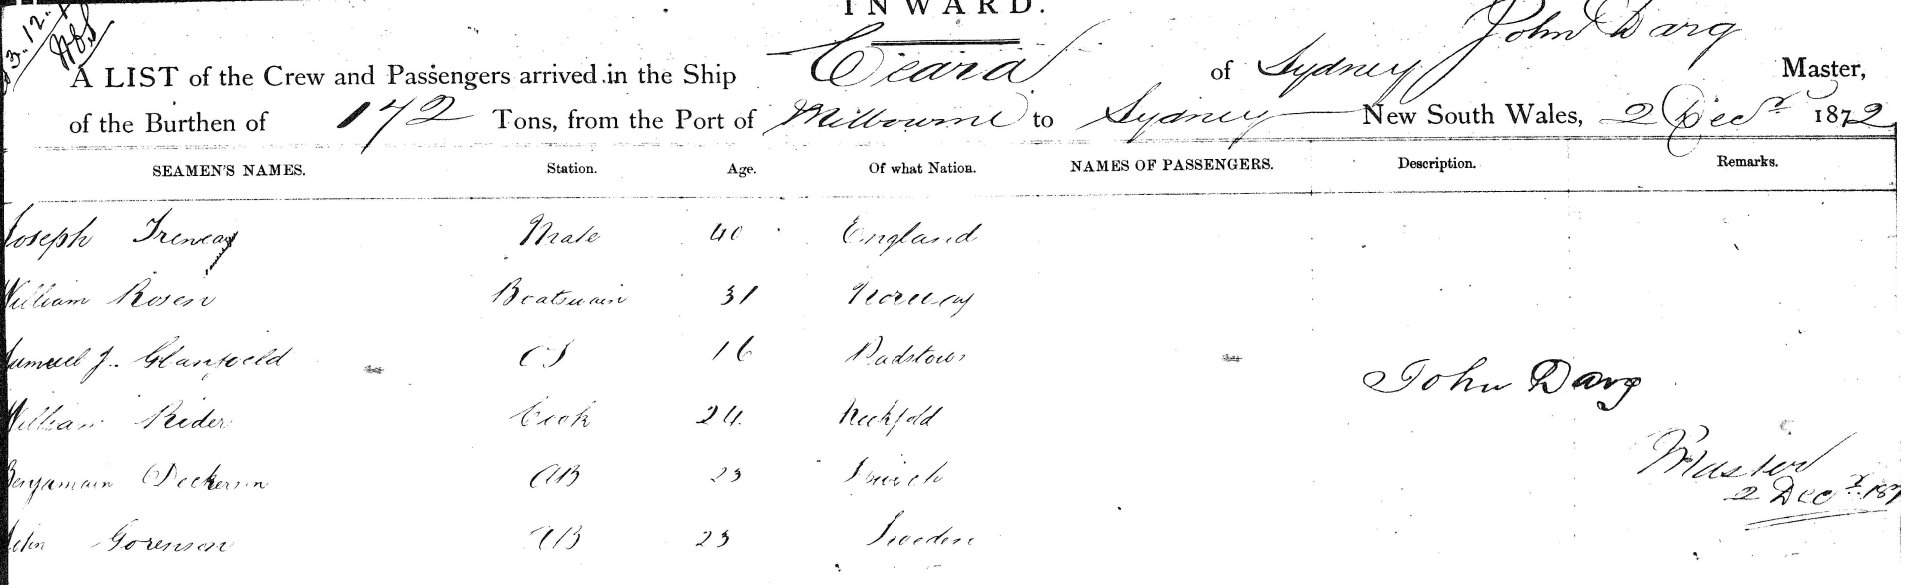 INWARD.
A LIST of the Crew and Passengers arrived in the Ship Ceara of Sydney John Darg Master,
of the Burthen of 172 Tons, from the Port of Melbourne to Sydney New South Wales, 2 Decr 1872
SEAMEN'S NAMES. Station. Age. Of what Nation. NAMES OF PASSENGERS. Description. Remarks.
Joseph Mate 40 England
William Rosen Boatswain 31 Norway
Samuel J. OS 16 Padstow
John Darg
William Rider Cook 24
Master
Benjamain Dickerson AB 23
2 Decr 187
John Sorenson AB 23 Sweden